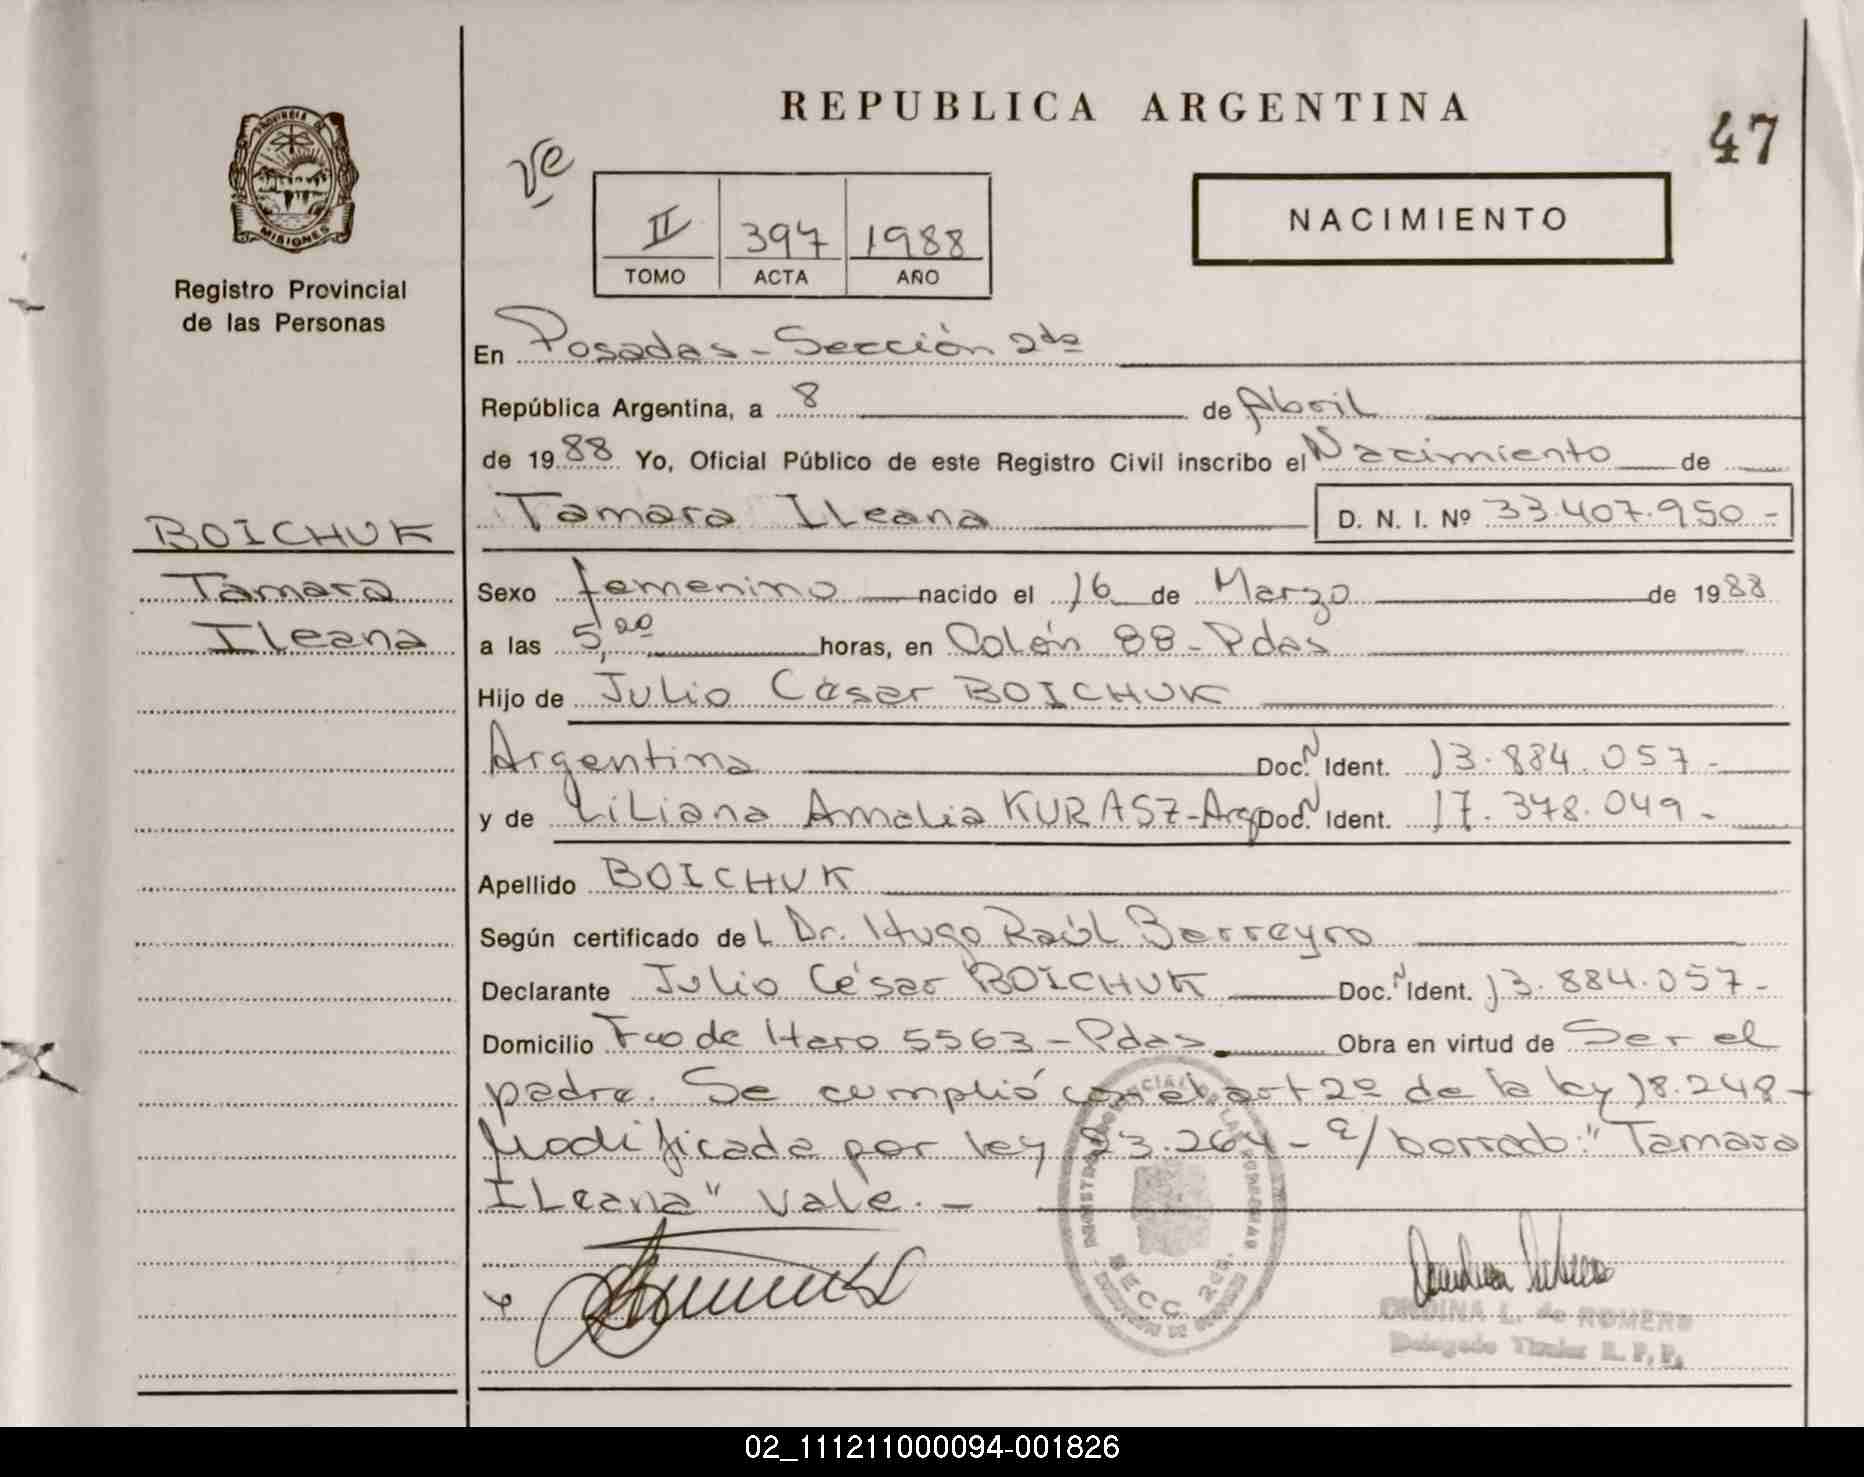 REPUBLICA ARGENTINA
47
PROVINCIA DE
MISIONES
Registro Provincial
de las Personas
II 397 1988
TOMO ACTA AÑO
NACIMIENTO
En Posadas - Sección 2da
República Argentina, a 8 de Abril
de 1988 Yo, Oficial Público de este Registro Civil inscribo el Nacimiento de
Tamara ILeana D. N. I. Nº 33.407.950 -
BOICHUK
Tamara
ILeana
Sexo femenino nacido el 16 de Marzo de 1988
a las 5,20 horas, en Colón 88 - Pdas
Hijo de Julio César BOICHUK
Argentina Doc. N Ident. 13.884.057 -
y de LiLiana Amalia KURASZ - Arg Doc. N Ident. 17.378.049 -
Apellido BOICHUK
Según certificado del Dr. Hugo RaúL Barreyro
Declarante Julio César BOICHUK Doc. N Ident. 13.884.057 -
Domicilio Fco de Haro 5563 - Pdas Obra en virtud de Ser el
padre. Se cumplió con el art 2º de la ley 18.248 -
Modificada por ley 23.264 - e/borrado: "Tamara
ILeana" vale. -
SECC. 2da.
L. de ROMERO
Delegado Titular R. P. P.
02_111211000094-001826